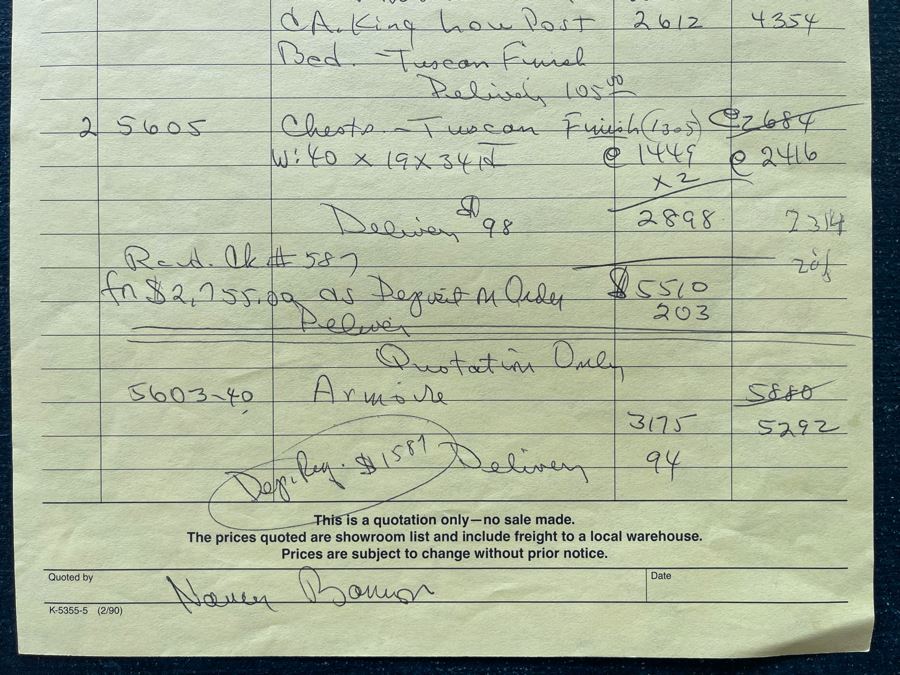 CA. King Low Post 2612 4354
Bed. - Tuscan Finish
Delivery 105.00
2 5605 Chests. - Tuscan Finish (1305) @2684
W: 40 x 19 x 34 H @ 1449 @ 2416
x 2
Delivery $98 2898
Rcd. Ck # 587
fn $2,755.00 as Deposit on Order $5510
Delivery 203
Quotation Only
5603-40 Armoire 5880
3175 5292
Dep. Req. $1587 Delivery 94
This is a quotation only—no sale made.
The prices quoted are showroom list and include freight to a local warehouse.
Prices are subject to change without prior notice.
Quoted by Date
K-5355-5 (2/90)